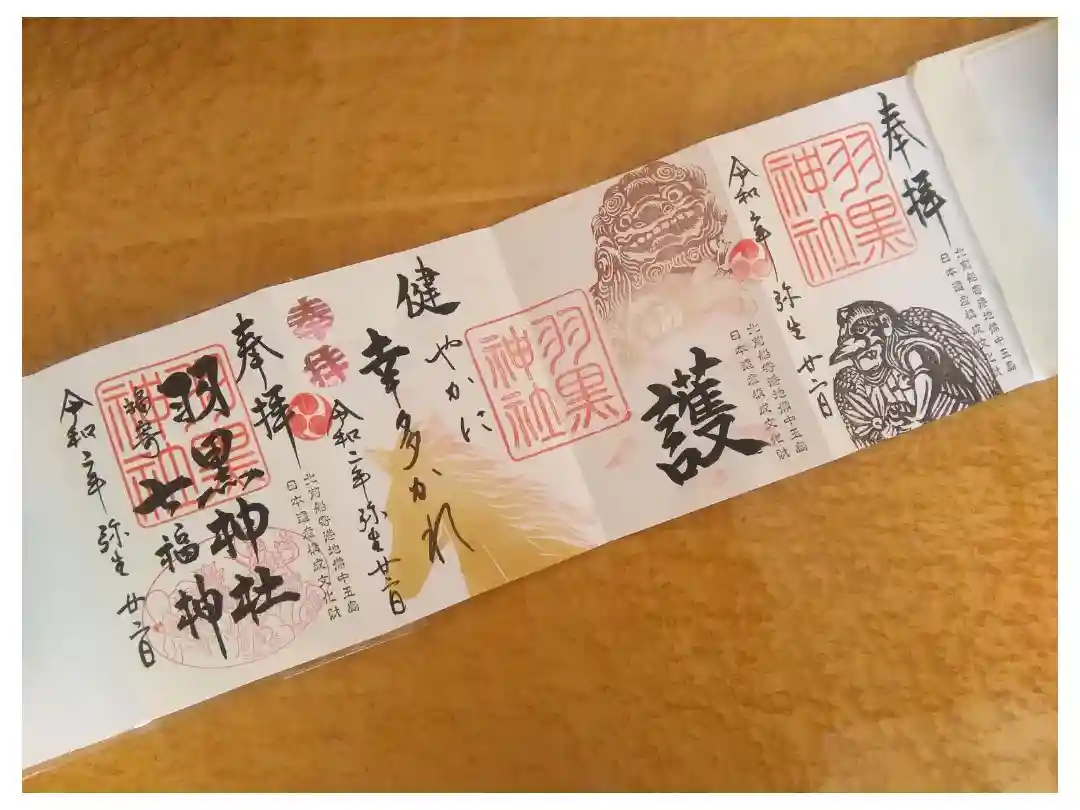 奉拝
北前船寄港地備中玉島
日本遺産構成文化財
羽黒
神社
令和二年 弥生 廿二日
北前船寄港地備中玉島
日本遺産構成文化財
護
羽黒
神社
健やかに
幸多かれ
奉拝
令和二年 弥生 廿二日
北前船寄港地備中玉島
日本遺産構成文化財
奉拝
羽黒神社
七福神
羽黒
神社
令和二年 弥生 廿二日